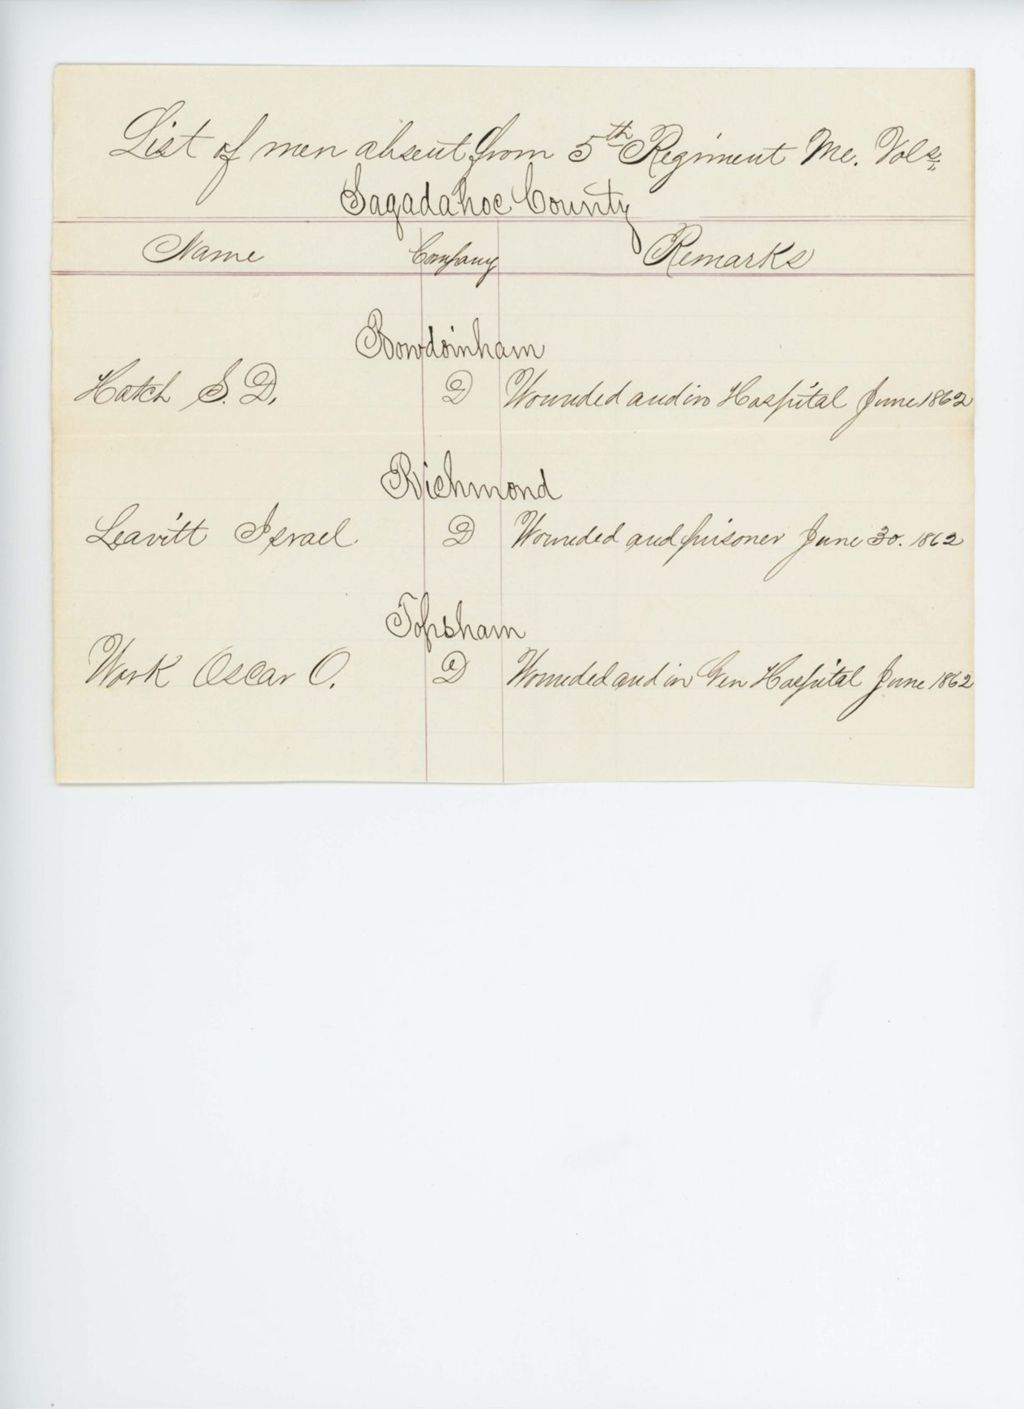 List of men absent from 5th Regiment Me. Vols.
Sagadahoc County
Name Company Remarks
Bowdoinham
Hatch S. D. D Wounded and in Hospital June 1862
Richmond
Leavitt Israel D Wounded and prisoner June 30. 1862
Topsham
Work Oscar O. D Wounded and in Gen Hospital June 1862